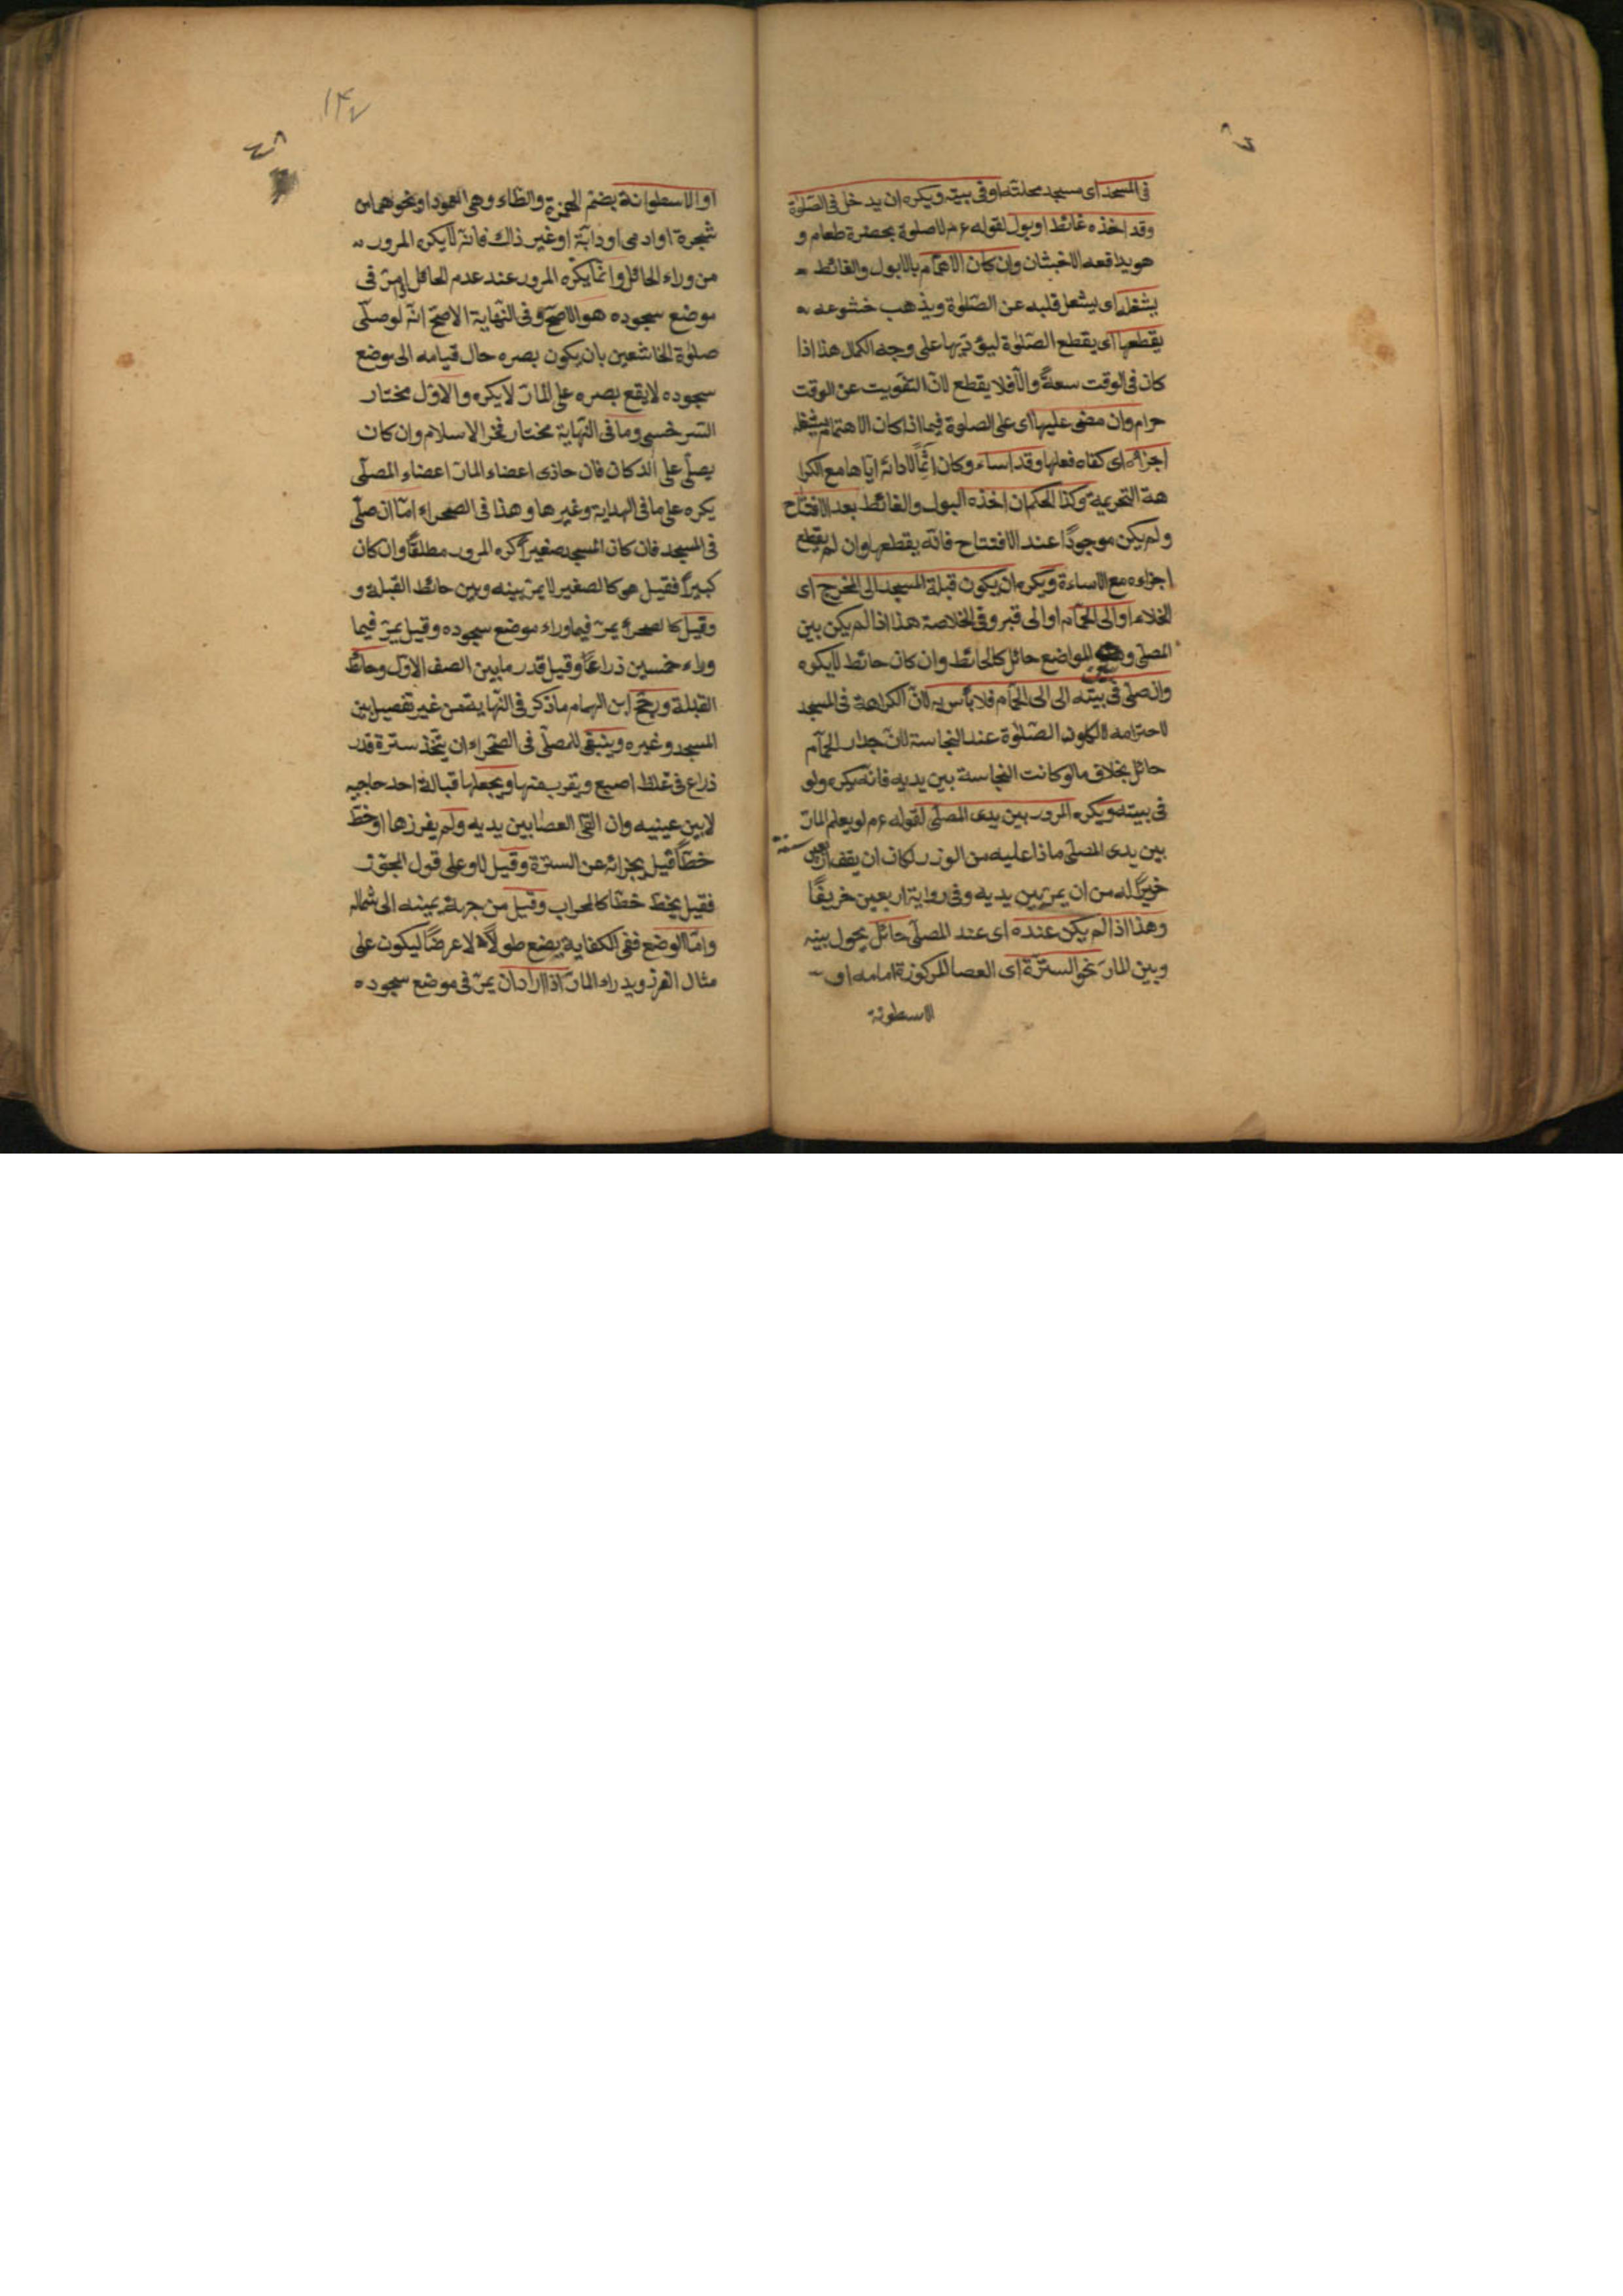 فى المسجد اى مسجد محلته او فى بيته ويكره ان يدخل فى الصّلوة
وقد اخذه غائط او بول لقوله ع م لا صلوة بحضرة طعام و
هو يدافعه الاخبثان وان كان الاهتمام بالبول والغائط
يشغله اى يشغل قلبه عن الصّلوة ويذهب خشوعه
يقطعها اى يقطع الصّلوة ليؤديها على وجه الكمال هذا اذا
كان فى الوقت سعةً والّا فلا يقطع لانّ التفويت عن الوقت
حرام وان مضى عليها اى على الصلوة فيما اذا كان الاهتمام يشغله
اجزاه اى كفاه فعلها وقد اساء وكان اثمًا لادائه ايّاها مع الكرا
هة التحريمية وكذا الحكم ان اخذه البول والغائط بعد الافتتاح
ولم يكن موجودًا عند الافتتاح فانّه يقطعها وان لم يقطع
اجزاءه مع الاساءة ويكره ان يكون قبلة المسجد الى المخرج اى
الخلاء او الى الحمّام او الى قبر وفى الخلاصة هذا اذا لم يكن بين
المصلى و المواضع حائل كالحائط وان كان حائط لا يكره
وان صلّى فى بيته الى الى الحمّام فلا بأس به لانّ الكراهة فى المسجد
لاحترامه لا لكون الصّلوة عند النجاسة لانّ جدار الحمّام
حائل بخلاف ما لو كانت النجاسة بين يديه فانّه يكره ولو
فى بيته ويكره المرور بين يدى المصلّى لقوله ع م لو يعلم المارّ
بين يدى المصلى ماذا عليه من الوزر لكان ان يقف اربعين سنة
خيرًا له من ان يمرّ بين يديه وفى رواية اربعين خريفًا
وهذا اذا لم يكن عنده اى عند المصلّى حائل يحول بينه
وبين المارّ نحو السترة اى العصا المركوزة امامه او
الاسطونة
١٤٧
او الاسطوانة بضمّ الهمزة والطاء وهى العمود او نحوهما من
شجرة او ادمى او دابّة او غير ذلك فانّه لا يكره المرور
من وراء الحائل وانّما يكره المرور عند عدم الحائل ان مرّ فى
موضع سجوده هو الاصحّ وفى النّهاية الاصحّ انّه لو صلّى
صلوة الخاشعين بان يكون بصره حال قيامه الى موضع
سجوده لا يقع بصره على المارّ لا يكره والاوّل مختار
السّرخسى وما فى النّهاية مختار فخر الاسلام وان كان
يصلّى على الدكان فان حاذى اعضاء المارّ اعضاء المصلّى
يكره على ما فى الهداية وغيرها وهذا فى الصحراء امّا ان صلّى
فى المسجد فان كان المسجد صغيرًا كره المرور مطلقًا وان كان
كبيرًا فقيل هى كالصغير لا يمرّ بينه وبين حائط القبلة و
وقيل كالصحراء يمرّ فيما وراء موضع سجوده وقيل يمرّ فيما
وراء خمسين ذراعًا وقيل قدر ما بين الصف الاوّل وحائط
القبلة ورجّح ابن الهمام ما ذكر فى النّهاية من غير تفصيل بين
المسجد وغيره وينبغى للمصلّى فى الصّحراء ان يتّخذ سترة قدر
ذراع فى غلظ اصبع ويقرب منها ويجعلها قبالة احد حاجبيه
لا بين عينيه وان القى العصا بين يديه ولم يغرزها او خطّ
خطّا قيل يجزائه عن السترة وقيل لا وعلى قول المجوّز
فقيل يخطّ خطّا كالمحراب وقيل من جهة يمينه الى شماله
وامّا الوضع ففى الكفاية يضع طولًا لا عرضًا ليكون على
مثال الغرز ويدراء المارّ اذا اراد ان يمرّ فى موضع سجوده